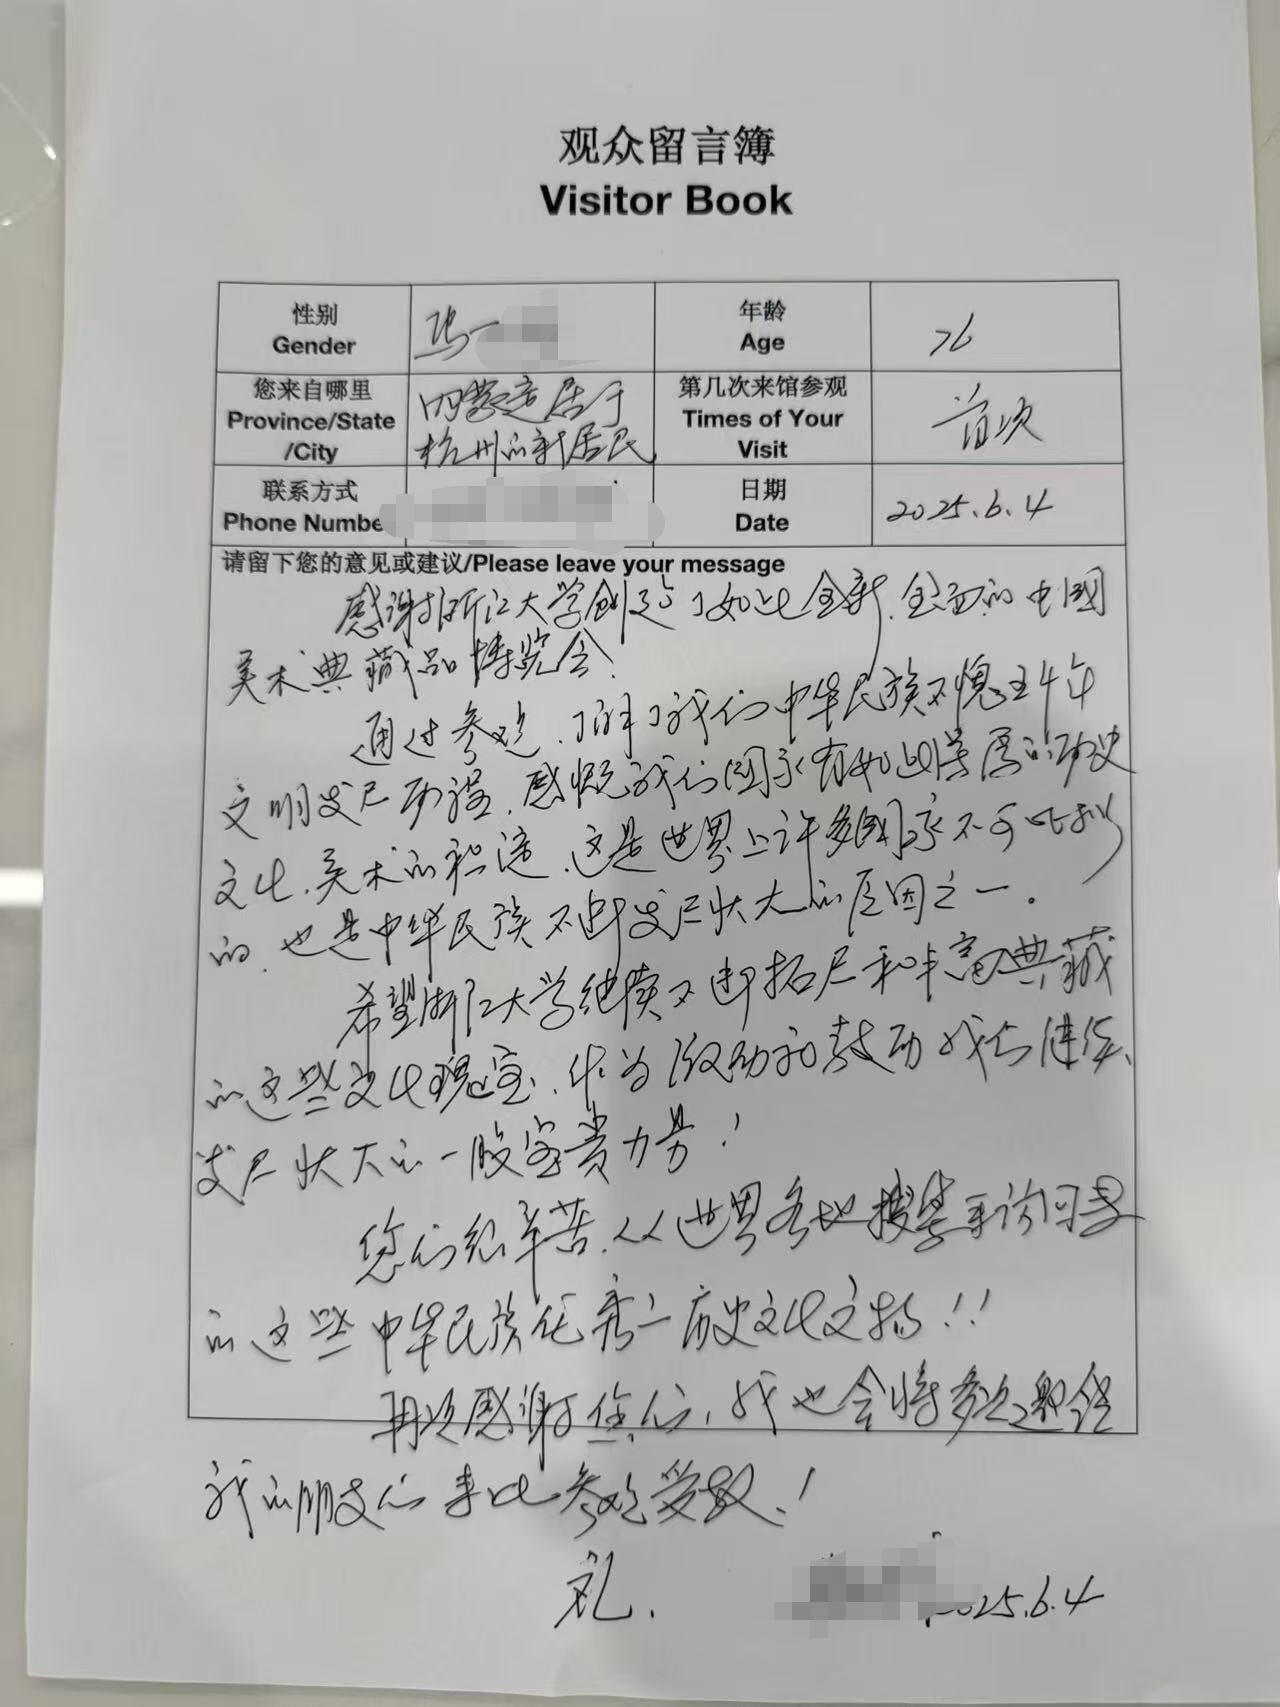 观众留言簿
Visitor Book
性别
Gender
冯一
年龄
Age
76
您来自哪里
Province/State
/City
内蒙迁居于
杭州的新居民
第几次来馆参观
Times of Your
Visit
首次
联系方式
Phone Numbe
日期
Date
2025.6.4
请留下您的意见或建议/Please leave your message
感谢浙江大学创造了如此全新、全面的中国
美术典藏品博览会!
通过参观,了解了我们中华民族不愧五千年
文明发展历程,感慨我们国家有如此深厚的历史
文化、美术的积淀,这是世界上许多国家不可比拟
的,也是中华民族不断发展壮大的原因之一。
希望浙江大学继续不断拓展和丰富典藏
的这些文化瑰宝,作为激励和鼓动我们继续、
发展壮大的一股宝贵力量!
您们很辛苦,从世界各地搜集
的这些中华民族优秀历史文化文物!!
再次感谢您们,我也会将多多邀请
我的朋友们来此参观受教!
礼.
2025.6.4